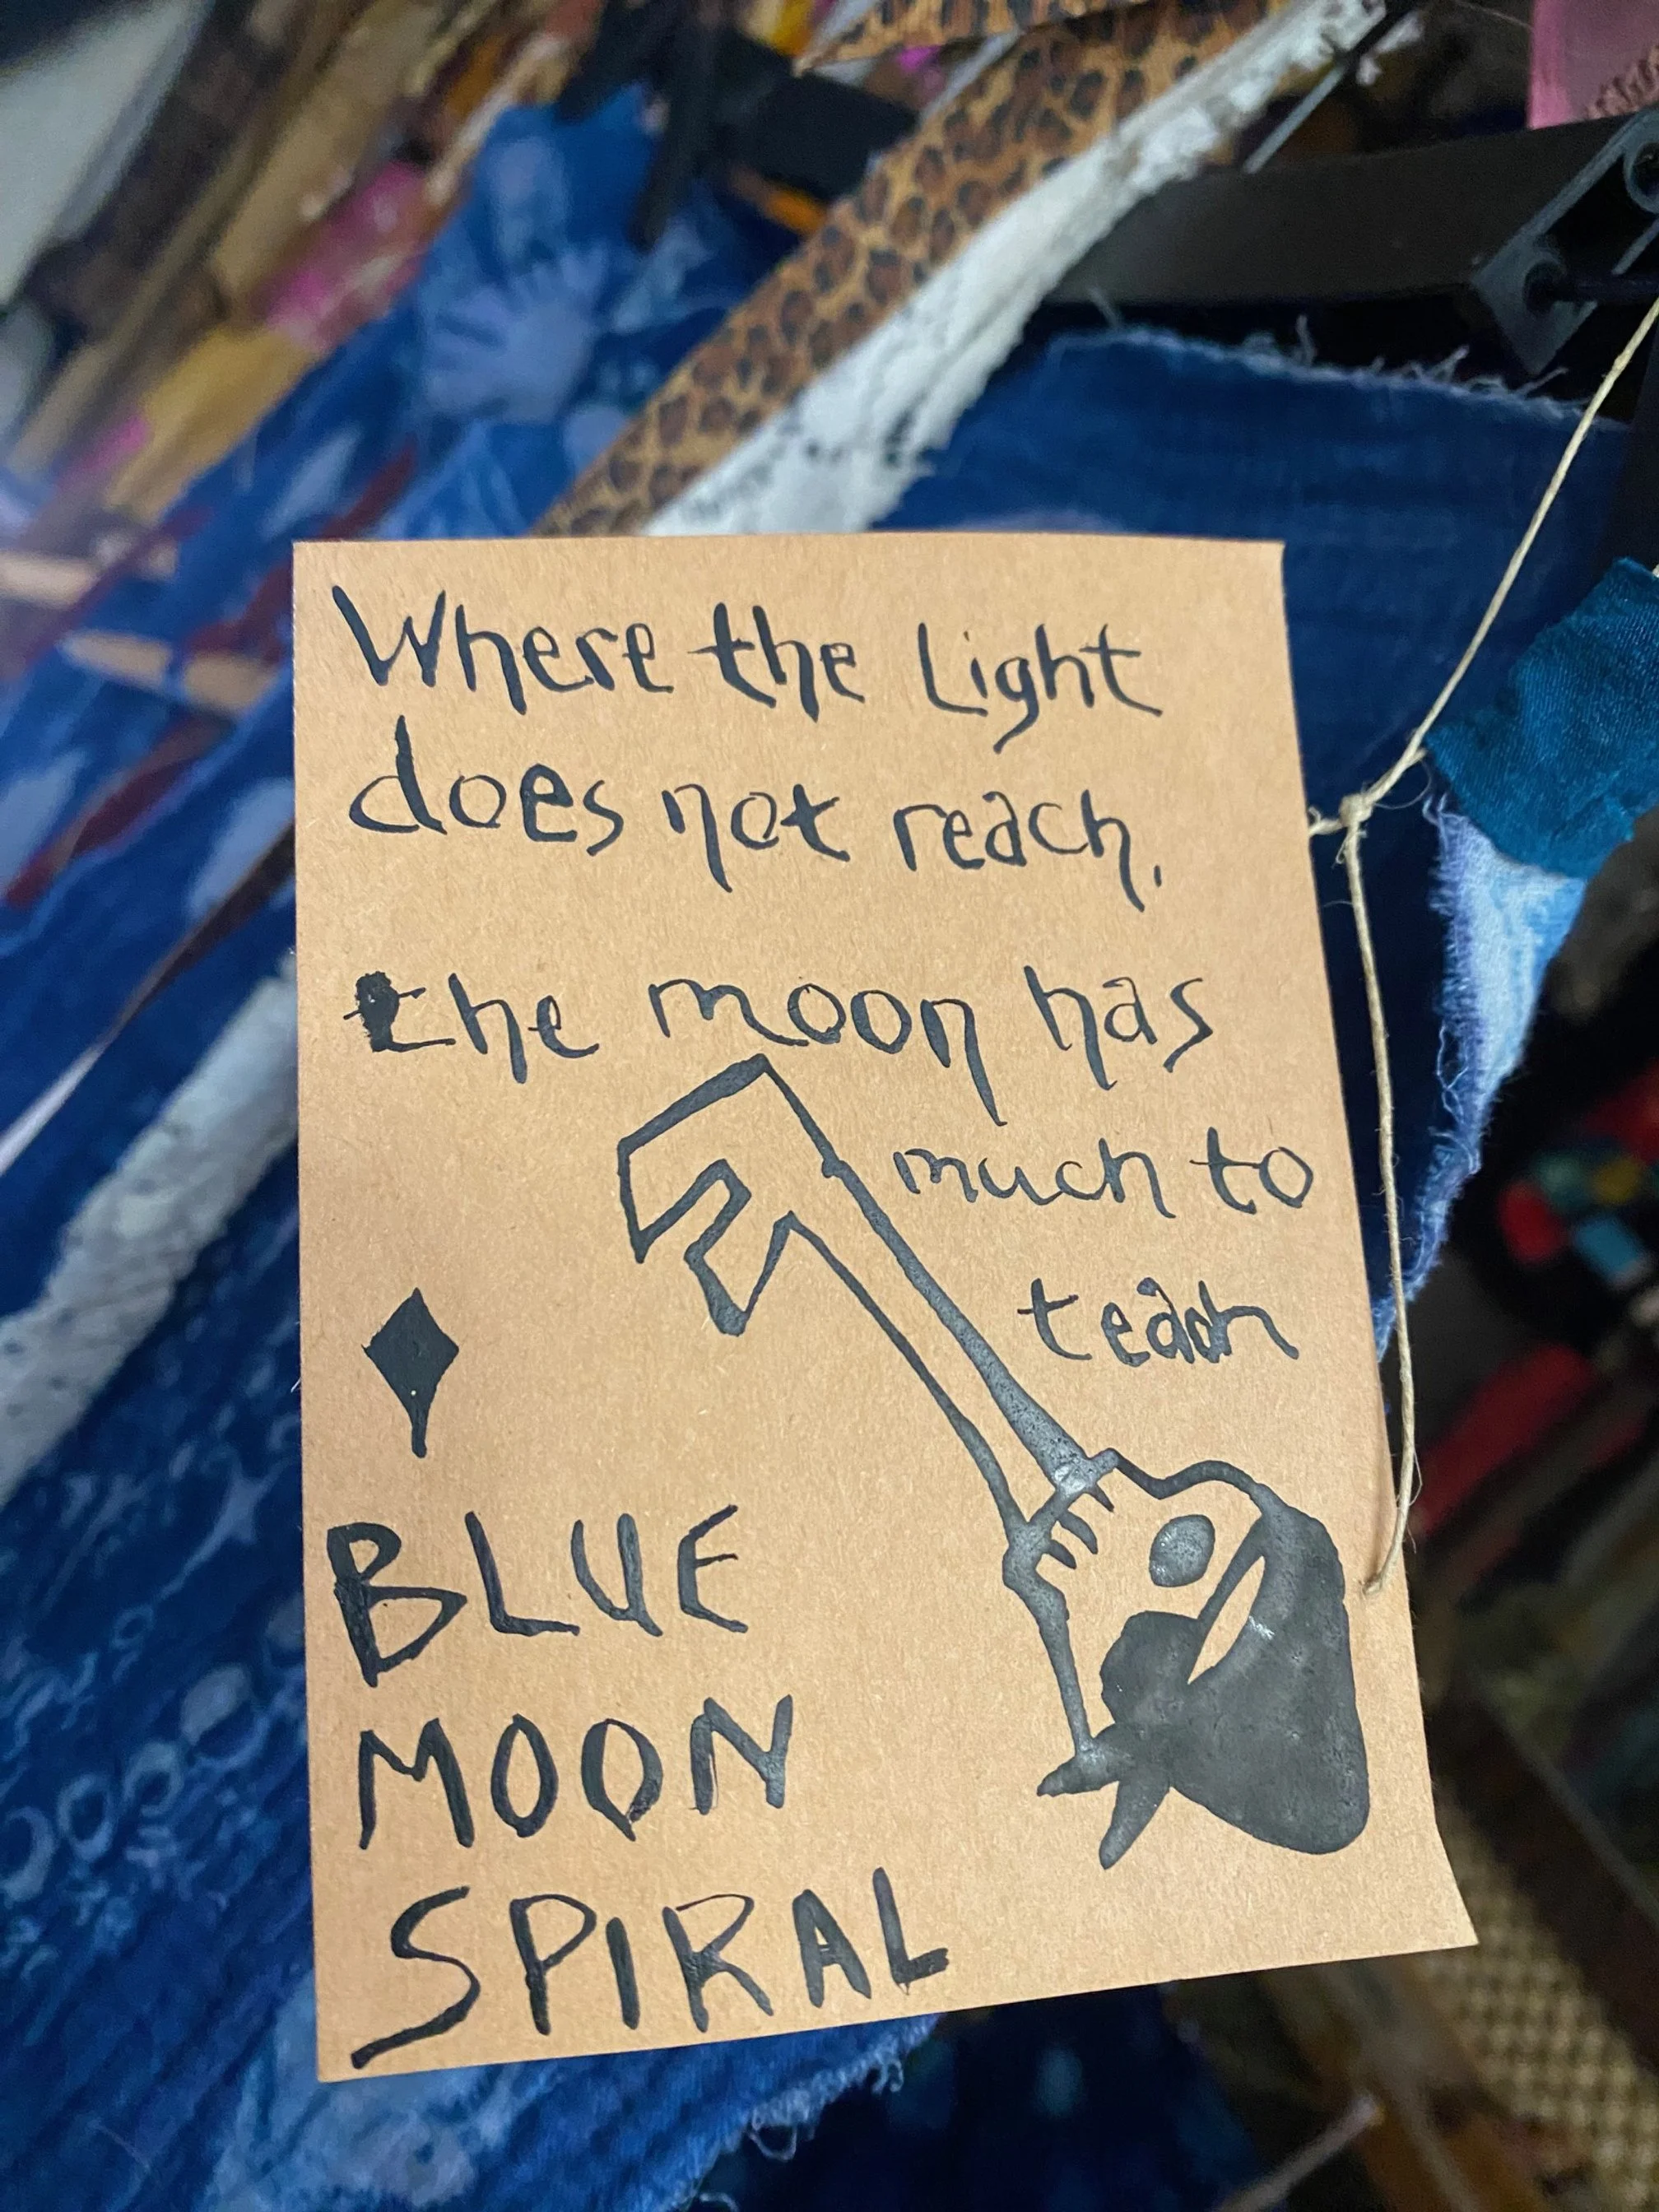 Where the Light
does not reach.
the moon has
much to
teach
BLUE
MOON
SPIRAL